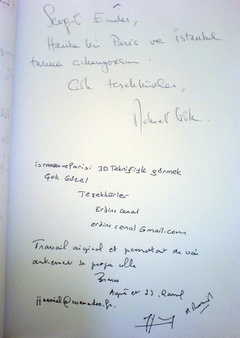 Sevgili Ender,
Harika bir Paris ve İstanbul
turuna çıkmışsın.
Çok teşekkürler,
Gök.
İSTANBUL ve Parisi 3D Tekniğiyle görmek
Çok Güzel
Teşekkürler
Erdinc Cenal
erdinc cenal Gmail.com
Travail original et permettant de voir
autrement sa propre ville
Bravo
et JJ.